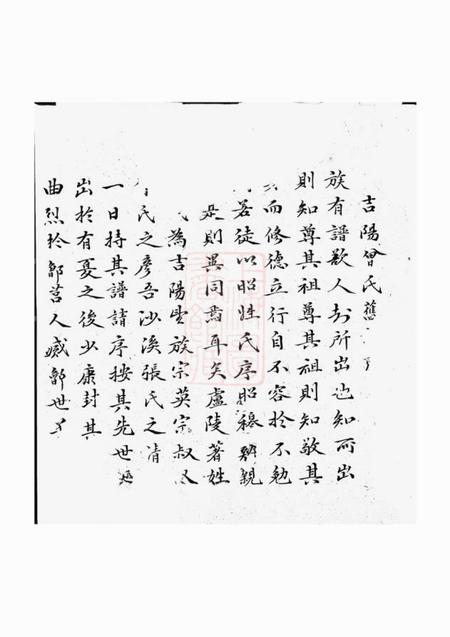 吉陽曾氏舊
族有譜欲人知所出也知所出
則知尊其祖尊其祖則知敬其
而修德立行自不容於不勉
若徒以昭姓氏序昭穆辨親
是則異同焉耳矣盧陵著姓
為吉陽望族宗英宗叔
氏之彥吾沙溪張氏之
一日持其譜請序按其先世
出於有夏之後少康封其
曲烈於鄫莒人滅鄫世